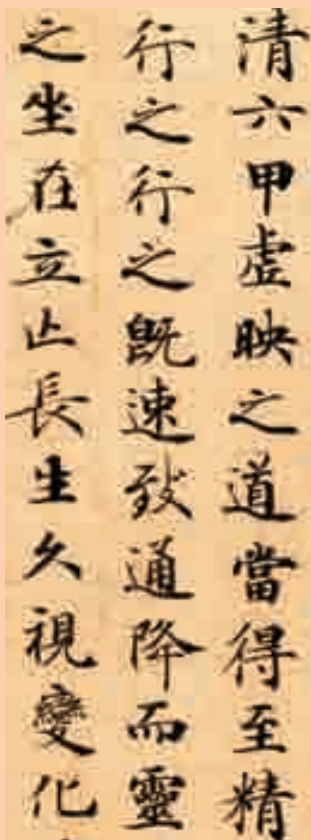 清六甲虛映之道當得至精
行之行之既速致通降而靈
之坐在立亾長生久視變化